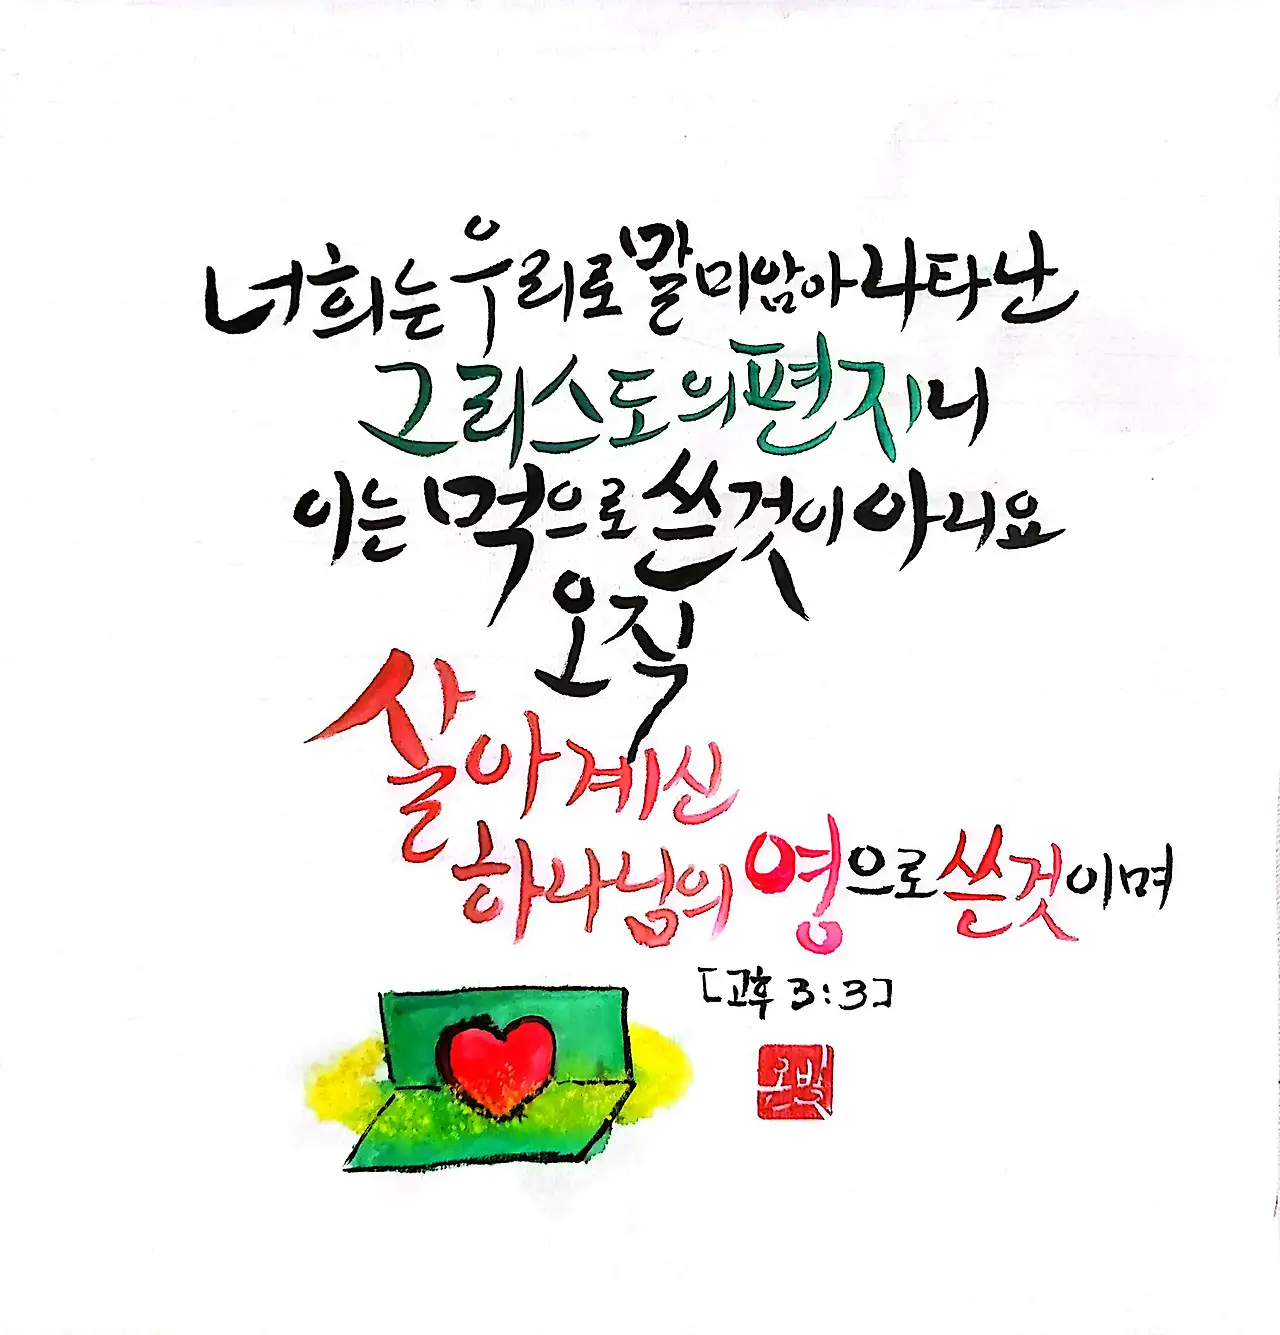 너희는 우리로 말미암아 나타난
그리스도의 편지니
이는 먹으로 쓴것이 아니요
오직
살아계신
하나님의 영으로 쓴것이며
[고후 3:3]